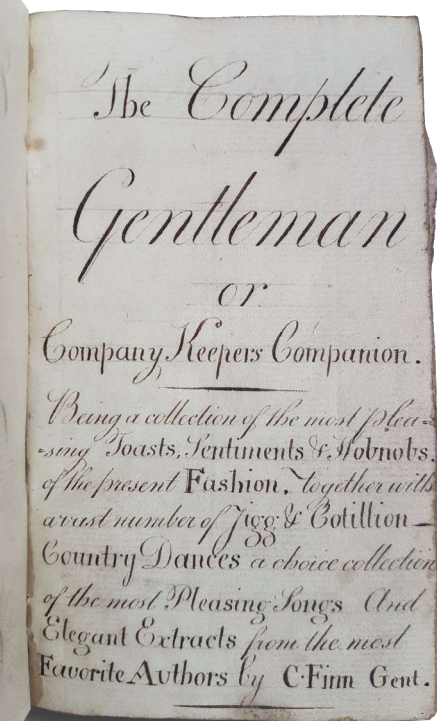 The Complete
Gentleman
or
Company Keepers Companion.
Being a collection of the most plea=
=sing Toasts, Sentiments & Hobnobs.
of the present Fashion. together with
a vast number of Jigg & Cotillion
Country Dances a choice collection
of the most Pleasing Songs And
Elegant Extracts from the most
Favorite Authors by C. Finn Gent.